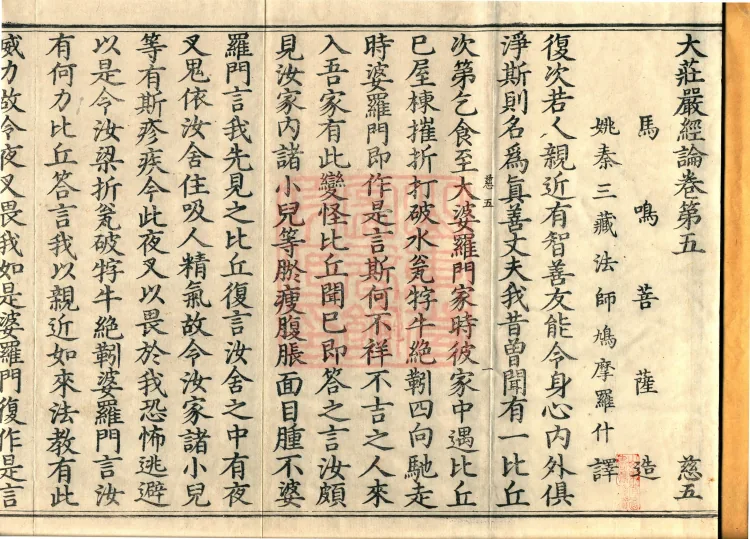 大莊嚴經論卷第五 慈五
馬鳴菩薩造
姚秦三藏法師鳩摩羅什譯
復次若人親近有智善友能令身心內外俱
淨斯則名爲眞善丈夫我昔曾聞有一比丘
慈五 一
次第乞食至大婆羅門家時彼家中遇比丘
巳屋棟摧折打破水瓮牸牛絶靷四向馳走
時婆羅門即作是言斯何不祥不吉之人來
入吾家有此變怪比丘聞巳即答之言汝頗
見汝家內諸小兒等㿉瘦腹脹面目腫不婆
羅門言我先見之比丘復言汝舍之中有夜
叉鬼依汝舍住吸人精氣故今汝家諸小兒
等有斯疹疾今此夜叉以畏於我恐怖逃避
以是令汝梁折瓮破牸牛絶靷婆羅門言汝
有何力比丘答言我以親近如來法教有此
威力故令夜叉畏我如是婆羅門復作是言